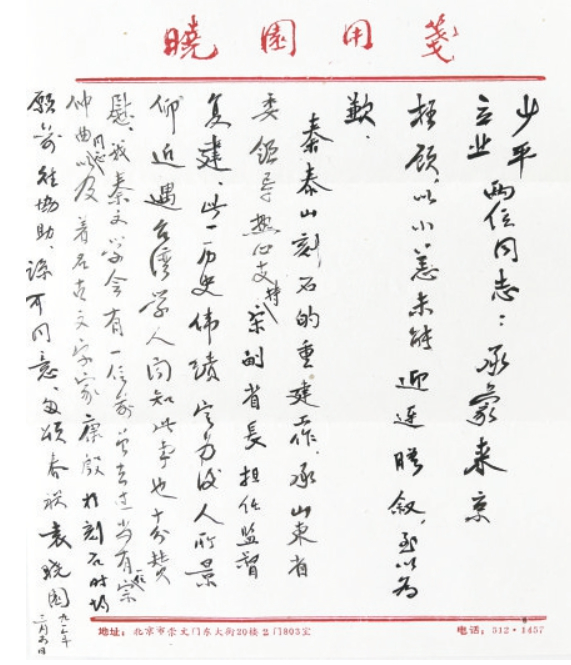 曉園用箋
少平
立业 两位同志：承蒙来京
枉顾,以小恙未能迎迓晤叙,至以为
歉.
秦泰山刻石的重建工作,承山东省
委领导热心支持,宋副省长担任监督
复建,此一历史伟绩定为后人所景
仰 近遇台湾学人闻知此事也十分赞
慰,我秦文学会有一位前曾去过 尚有宗
仲曲同志以及著名古文字家康殷 刻石时均
愿前往协助,谅可同意, 颂春祺 袁晓园
九一年
三月 日
地址：北京市崇文门东大街20楼2门803室
电话：512·1457